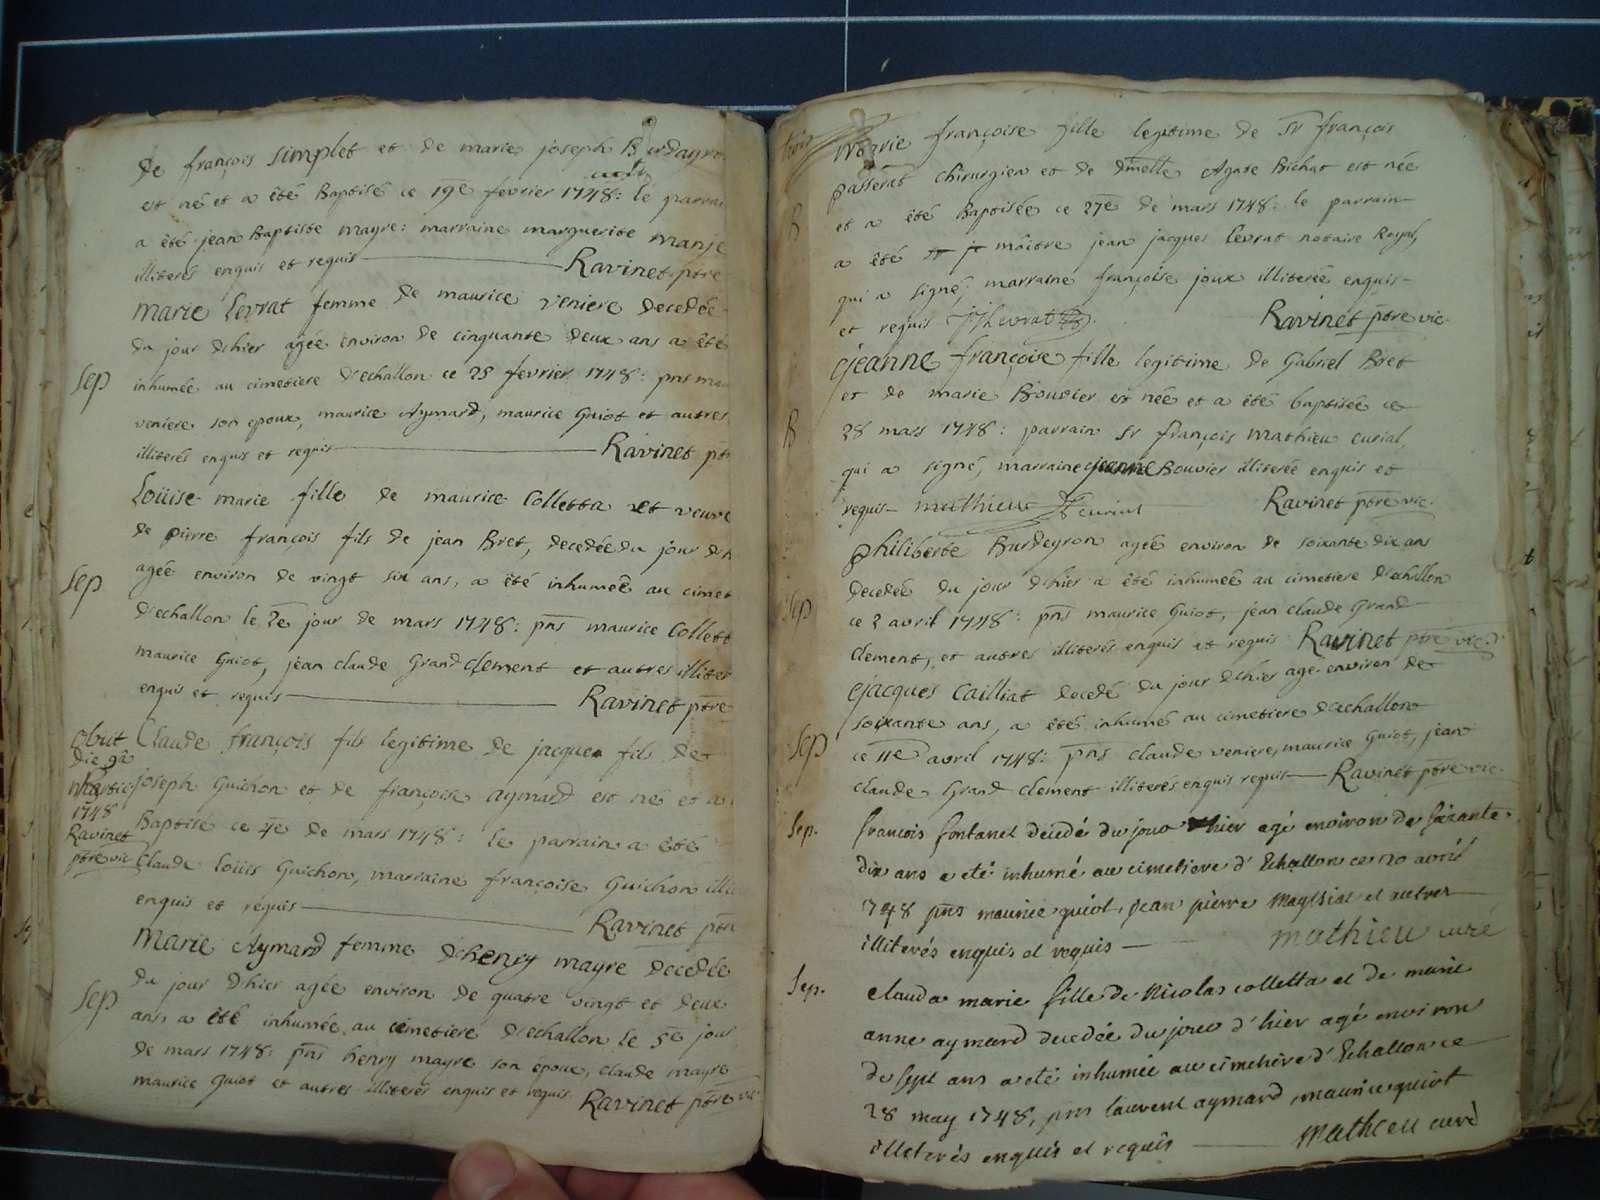 de françois Simplet et de marie joseph Burdayron
est né et a été Baptisé ce 19e février 1748: le parrai
a été jean Baptiste mayre: marraine marguerite manje
illiterés enquis et requis Ravinet ptre
Marie Levrat femme de maurice veniere decedée
du jour d'hier agée environ de cinquante deux ans a été
Sep
inhumée au cimetiere d'echallon ce 25 fevrier 1748: pns mau
veniere son epoux, maurice Aymard, maurice Guiot et autres
illiterés enquis et requis Ravinet pt
Loüise marie fille de maurice Colletta et veuve
de pierre françois fils de jean Bret, decedée du jour d'h
Sep
agée environ de vingt six ans, a été inhumée au cimet
d'echallon le 2e jour de mars 1748: pns maurice Collett
maurice Guiot, jean claude Grand clement et autres illiter
enquis et requis Ravinet ptre
obiit
die 9a
martii
1748
Ravinet
ptre vic
Claude françois fils legitime de jacque fils de
joseph Guichon et de françoise aymard est né et a
Baptisé ce 4e de mars 1748: le parrain a été
Claude Loüis Guichon, marraine françoise Guichon illi
enquis et requis Ravinet ptr
Marie Aymard femme d'henry mayre decedée
du jour d'hier agée environ de quatre vingt et deux
Sep
ans, a été inhumée au cimetiere d'echallon le 5e jour
de mars 1748: pns henry mayre son époux, claude mayre
maurice Guiot et autres illiterés enquis et requis Ravinet ptre vic
Marie françoise fille legitime de Sr françois
passerat chirurgien et de dmelle Agate Bichat est née
B
et a été Baptisée ce 27e de mars 1748: le parrain
a été maître jean jacques Levrat notaire Royal,
qui a signé, marraine françoise joux illiterée enquis
et requis JJ Levrat Ravinet ptre vic.
jeanne françoise fille legitime de Gabriel Bret
et de marie Bouvier est née et a été baptisée ce
B
28 mars 1748: parrain Sr françois mathieu curial,
qui a signé, marraine jeanne Bouvier illiterée enquis et
requis mathieu curial Ravinet ptre vic.
philiberte Burdeyron agée environ de soixante dix ans
decedée du jour d'hier a été inhumée au cimetiere d'echallon
Sep
ce 2 avril 1748: pns maurice Guiot, jean claude Grand
clement, et autres illiterés enquis et requis Ravinet ptre vic.
jacques Cailliat decedé du jour d'hier agé environ de
soixante ans, a été inhumé au cimetiere d'echallon
Sep
ce 11e avril 1748: pns claude veniere, maurice Guiot, jean
claude Grand clement illiterés enquis requis Ravinet ptre vic.
Sep.
françois fontanel decedé du jour d'hier agé environ de soixante
dix ans a été inhumé au cimetiere d'Echallon ce 20 avril
1748 pns maurice guiot, jean pierre Mayssiat et autres
illiterés enquis et requis mathieu curé
Sep.
clauda marie fille de Nicolas colletta et de marie
anne aymard decedée du jour d'hier agé environ
de sept ans a été inhumée au cimetiere d'Echallon ce
28 may 1748, pns laurent aymard, maurice guiot
illiterés enquis et requis mathieu curé